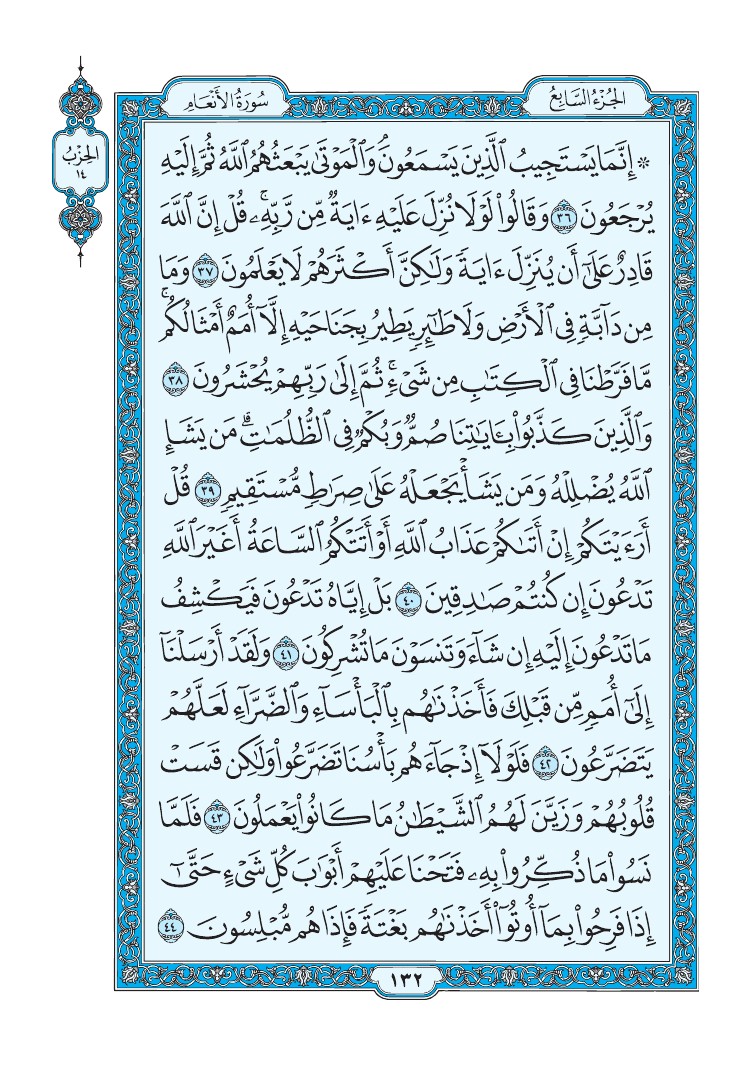 الجزء السابع
سورة الأنعام
الحزب
١٤
۞ إِنَّمَا يَسْتَجِيبُ ٱلَّذِينَ يَسْمَعُونَۘ وَٱلْمَوْتَىٰ يَبْعَثُهُمُ ٱللَّهُ ثُمَّ إِلَيْهِ
يُرْجَعُونَ ٣٦ وَقَالُوا۟ لَوْلَا نُزِّلَ عَلَيْهِ ءَايَةٌ مِّن رَّبِّهِۦۚ قُلْ إِنَّ ٱللَّهَ
قَادِرٌ عَلَىٰٓ أَن يُنَزِّلَ ءَايَةً وَلَٰكِنَّ أَكْثَرَهُمْ لَا يَعْلَمُونَ ٣٧ وَمَا
مِن دَآبَّةٍ فِى ٱلْأَرْضِ وَلَا طَٰٓئِرٍ يَطِيرُ بِجَنَاحَيْهِ إِلَّآ أُمَمٌ أَمْثَالُكُمۚ
مَّا فَرَّطْنَا فِى ٱلْكِتَٰبِ مِن شَىْءٍۚ ثُمَّ إِلَىٰ رَبِّهِمْ يُحْشَرُونَ ٣٨
وَٱلَّذِينَ كَذَّبُوا۟ بِـَٔايَٰتِنَا صُمٌّ وَبُكْمٌ فِى ٱلظُّلُمَٰتِۗ مَن يَشَإِ
ٱللَّهُ يُضْلِلْهُ وَمَن يَشَأْ يَجْعَلْهُ عَلَىٰ صِرَٰطٍ مُّسْتَقِيمٍ ٣٩ قُلْ
أَرَءَيْتَكُمْ إِنْ أَتَىٰكُمْ عَذَابُ ٱللَّهِ أَوْ أَتَتْكُمُ ٱلسَّاعَةُ أَغَيْرَ ٱللَّهِ
تَدْعُونَ إِن كُنتُمْ صَٰدِقِينَ ٤٠ بَلْ إِيَّاهُ تَدْعُونَ فَيَكْشِفُ
مَا تَدْعُونَ إِلَيْهِ إِن شَآءَ وَتَنسَوْنَ مَا تُشْرِكُونَ ٤١ وَلَقَدْ أَرْسَلْنَآ
إِلَىٰٓ أُمَمٍ مِّن قَبْلِكَ فَأَخَذْنَٰهُم بِٱلْبَأْسَآءِ وَٱلضَّرَّآءِ لَعَلَّهُمْ
يَتَضَرَّعُونَ ٤٢ فَلَوْلَآ إِذْ جَآءَهُم بَأْسُنَا تَضَرَّعُوا۟ وَلَٰكِن قَسَتْ
قُلُوبُهُمْ وَزَيَّنَ لَهُمُ ٱلشَّيْطَٰنُ مَا كَانُوا۟ يَعْمَلُونَ ٤٣ فَلَمَّا
نَسُوا۟ مَا ذُكِّرُوا۟ بِهِۦ فَتَحْنَا عَلَيْهِمْ أَبْوَٰبَ كُلِّ شَىْءٍ حَتَّىٰٓ
إِذَا فَرِحُوا۟ بِمَآ أُوتُوٓا۟ أَخَذْنَٰهُم بَغْتَةً فَإِذَا هُم مُّبْلِسُونَ ٤٤
١٣٢